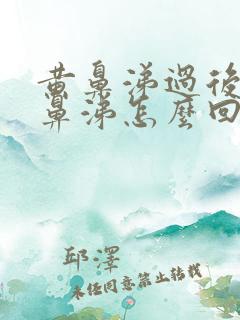 黄鼻涕過後
鼻涕怎麼回
邱澤
未经同意禁止转载